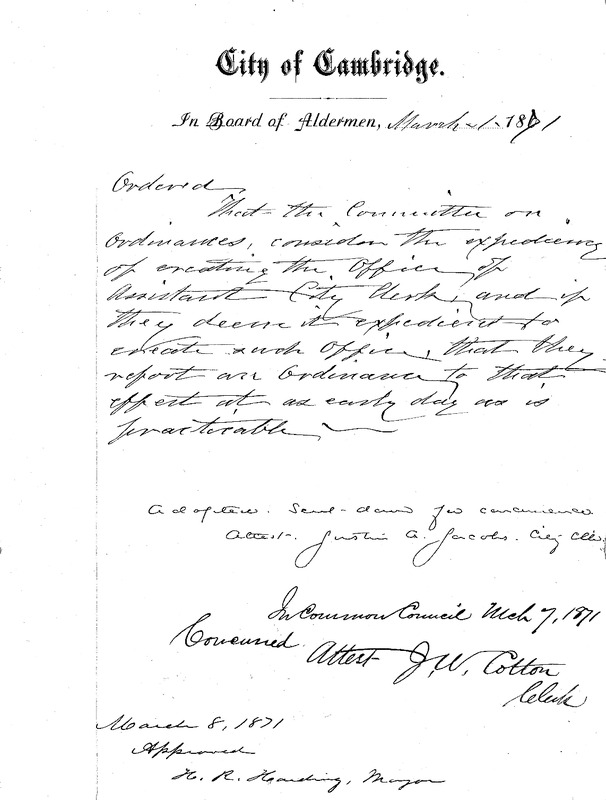 City of Cambridge.
In Board of Aldermen, March 1. 1871
Ordered,
That the Committee on
Ordinances, consider the expediency
of creating the Office of
Assistant City Clerk, and if
they deem it expedient to
create such Office, that they
report an Ordinance to that
effect at as early day as is
practicable
Adopted. Sent down for concurrence
Attest. Justin A. Jacobs. City Clerk
In Common Council Mch 7, 1871
Concurred.
Attest J. W. Cotton
Clerk
March 8, 1871
Approved
H. R. Harding, Mayor